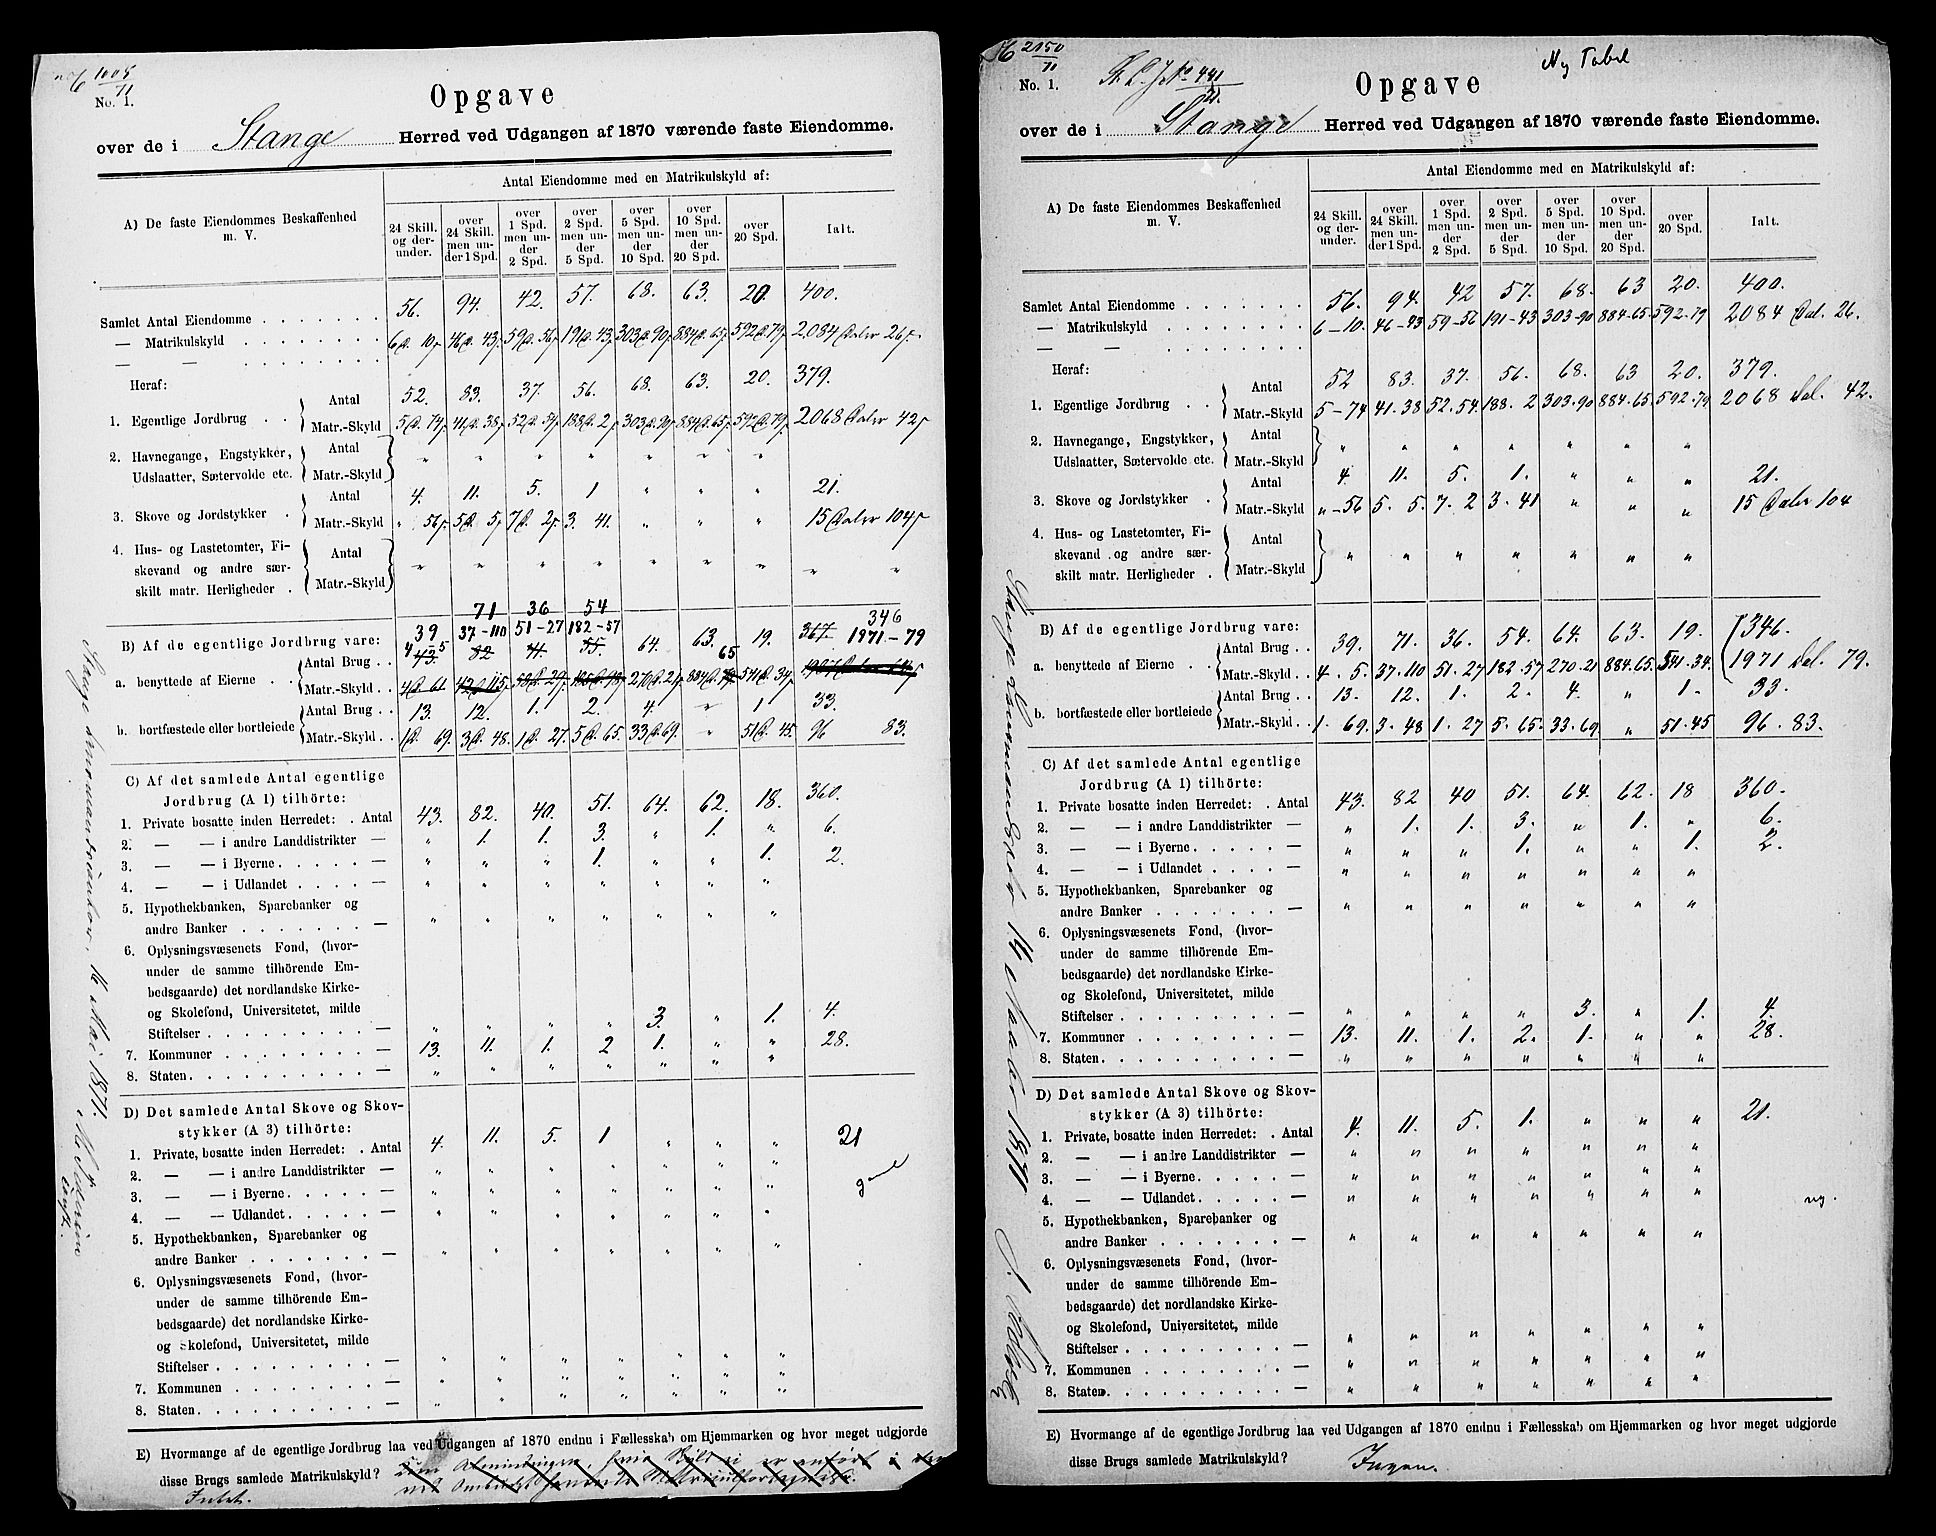 1005
71
No. 1.
Opgave
over de i Stange Herred ved Udgangen af 1870 værende faste Eiendomme.
A) De faste Eiendommes Beskaffenhed m. V.
Antal Eiendomme med en Matrikulskyld af:
24 Skill. og derunder. | over 24 Skill. men under 1 Spd. | over 1 Spd. men under 2 Spd. | over 2 Spd. men under 5 Spd. | over 5 Spd. men under 10 Spd. | over 10 Spd. men under 20 Spd. | over 20 Spd. | Ialt.
Samlet Antal Eiendomme 56. 94. 42. 57. 68. 63. 20 400.
— Matrikulskyld 6 10 46 43 59 56 191 43 303 90 884 65 592 79 2084 Daler 26
— —
Heraf:
1. Egentlige Jordbrug Antal 52. 83. 37. 56. 68. 63. 20. 379.
Matr.-Skyld 5 74 41 38 52 54 188 2 303 90 884 65 592 79 2068 Daler 42
2. Havnegange, Engstykker, Antal
Udslaatter, Sætervolde etc. Matr.-Skyld " " " " " " "
3. Skove og Jordstykker Antal 4. 11. 5. 1 " " " 21.
Matr.-Skyld " 56 5 5 7 2 3. 41. " " " 15 Daler 104
4. Hus- og Lastetomter, Fi- Antal
skevand og andre sær- " " " " " " " " "
skilt matr. Herligheder Matr.-Skyld
71 36 54 346
B) Af de egentlige Jordbrug vare: 39 37-110 51-27 182-57 1971-79
4-5
a. benyttede af Eierne Antal Brug 43. 82 41. 55. 64. 63. 19. 367
65
Matr.-Skyld 4 61 270 21 884 541 34
b. bortfæstede eller bortleiede Antal Brug 13. 12. 1. 2. 4. " 1 33.
Matr.-Skyld 1 69. 3 48. 1 27. 5 65. 33 69. " 51 45. 96 83.
C) Af det samlede Antal egentlige
Jordbrug (A 1) tilhörte:
1. Private bosatte inden Herredet: Antal 43. 82. 40. 51. 64. 62. 18. 360.
2. — — i andre Landdistrikter — " 1. 1. 3. " 1. " 6.
3. — — i Byerne — " " " 1. " " 1. 2.
4. — — i Udlandet — " " " " " " "
5. Hypothekbanken, Sparebanker og
andre Banker — " " " " " " "
6. Oplysningsvæsenets Fond, (hvor-
under de samme tilhörende Em-
bedsgaarde) det nordlandske Kirke-
og Skolefond, Universitetet, milde
Stiftelser — " " " " 3. " 1. 4.
7. Kommuner — 13. 11. 1. 2 1. " " 28.
8. Staten — " " " " " " "
D) Det samlede Antal Skove og Skov-
stykker (A 3) tilhörte:
1. Private, bosatte inden Herredet: Antal 4. 11. 5. 1 " " " 21
2. — — i andre Landdistrikter — " " " " " " "
3. — — i Byerne — " " " " " " "
4. — — Udlandet — " " " " " " "
5. Hypothekbanken, Sparebanker og
andre Banker — " " " " " " "
6. Oplysningsvæsenets Fond, (hvor-
under de samme tilhörende Em-
bedsgaarde) det nordlandske Kirke-
og Skolefond, Universitetet, milde
Stiftelser — " " " " " " "
7. Kommunen — " " " " " " "
8. Staten — " " " " " " "
E) Hvormange af de egentlige Jordbrug laa ved Udgangen af 1870 endnu i Fællesskab om Hjemmarken og hvor meget udgjorde
disse Brugs samlede Matrikulskyld?
Intet.
Mai 1871.
2150
71
Ny Tabel
No. 1.
441
Opgave
over de i Stange Herred ved Udgangen af 1870 værende faste Eiendomme.
A) De faste Eiendommes Beskaffenhed m. V.
Antal Eiendomme med en Matrikulskyld af:
24 Skill. og derunder. | over 24 Skill. men under 1 Spd. | over 1 Spd. men under 2 Spd. | over 2 Spd. men under 5 Spd. | over 5 Spd. men under 10 Spd. | over 10 Spd. men under 20 Spd. | over 20 Spd. | Ialt.
Samlet Antal Eiendomme 56. 94. 42 57. 68. 63 20. 400.
— Matrikulskyld 6-10. 46-43 59-56 191-43 303-90 884-65 592-79 2084 Dal. 26.
— —
Heraf:
1. Egentlige Jordbrug Antal 52 83. 37. 56. 68. 63 20. 379.
Matr.-Skyld 5-74 41.38 52.54 188.2 303.90 884.65 592.79 2068 Dal. 42.
2. Havnegange, Engstykker, Antal
Udslaatter, Sætervolde etc. Matr.-Skyld " " " " " " "
3. Skove og Jordstykker Antal 4. 11. 5. 1. " " " 21.
Matr.-Skyld "-56 5. 5. 7. 2 3. 41 " " " 15 Daler 104
4. Hus- og Lastetomter, Fi- Antal
skevand og andre sær- " " " " " " "
skilt matr. Herligheder Matr.-Skyld
B) Af de egentlige Jordbrug vare:
a. benyttede af Eierne Antal Brug 39. 71. 36. 54. 64. 63. 19 346.
Matr.-Skyld 4. 5. 37.110 51.27 182.57 270.21 884.65. 541.34. 1971 Dal. 79.
b. bortfæstede eller bortleiede Antal Brug 13. 12. 1. 2. 4. " 1. 33.
Matr.-Skyld 1. 69. 3. 48 1. 27 5. 65. 33.69 " 51.45 96. 83.
C) Af det samlede Antal egentlige
Jordbrug (A 1) tilhörte:
1. Private bosatte inden Herredet: Antal 43. 82 40 51. 64. 62. 18 360.
2. — — i andre Landdistrikter — " 1. 1. 3. " 1. " 6.
3. — — i Byerne — " " " 1. " " 1. 2.
4. — — i Udlandet — " " " " " " "
5. Hypothekbanken, Sparebanker og
andre Banker — " " " " " " "
6. Oplysningsvæsenets Fond, (hvor-
under de samme tilhörende Em-
bedsgaarde) det nordlandske Kirke-
og Skolefond, Universitetet, milde
Stiftelser — " " " " 3. " 1. 4.
7. Kommuner — 13. 11. 1. 2. 1. " " 28.
8. Staten — " " " " " " "
D) Det samlede Antal Skove og Skov-
stykker (A 3) tilhörte:
1. Private, bosatte inden Herredet: Antal 4. 11. 5. 1. " " " 21.
2. — — i andre Landdistrikter — " " " " " " "
3. — — i Byerne — " " " " " " "
4. — — Udlandet — " " " " " " "
5. Hypothekbanken, Sparebanker og
andre Banker — " " " " " " "
6. Oplysningsvæsenets Fond, (hvor-
under de samme tilhörende Em-
bedsgaarde) det nordlandske Kirke-
og Skolefond, Universitetet, milde
Stiftelser — " " " " " " "
7. Kommunen — " " " " " " "
8. Staten — " " " " " " "
E) Hvormange af de egentlige Jordbrug laa ved Udgangen af 1870 endnu i Fællesskab om Hjemmarken og hvor meget udgjorde
disse Brugs samlede Matrikulskyld? Ingen.
1871